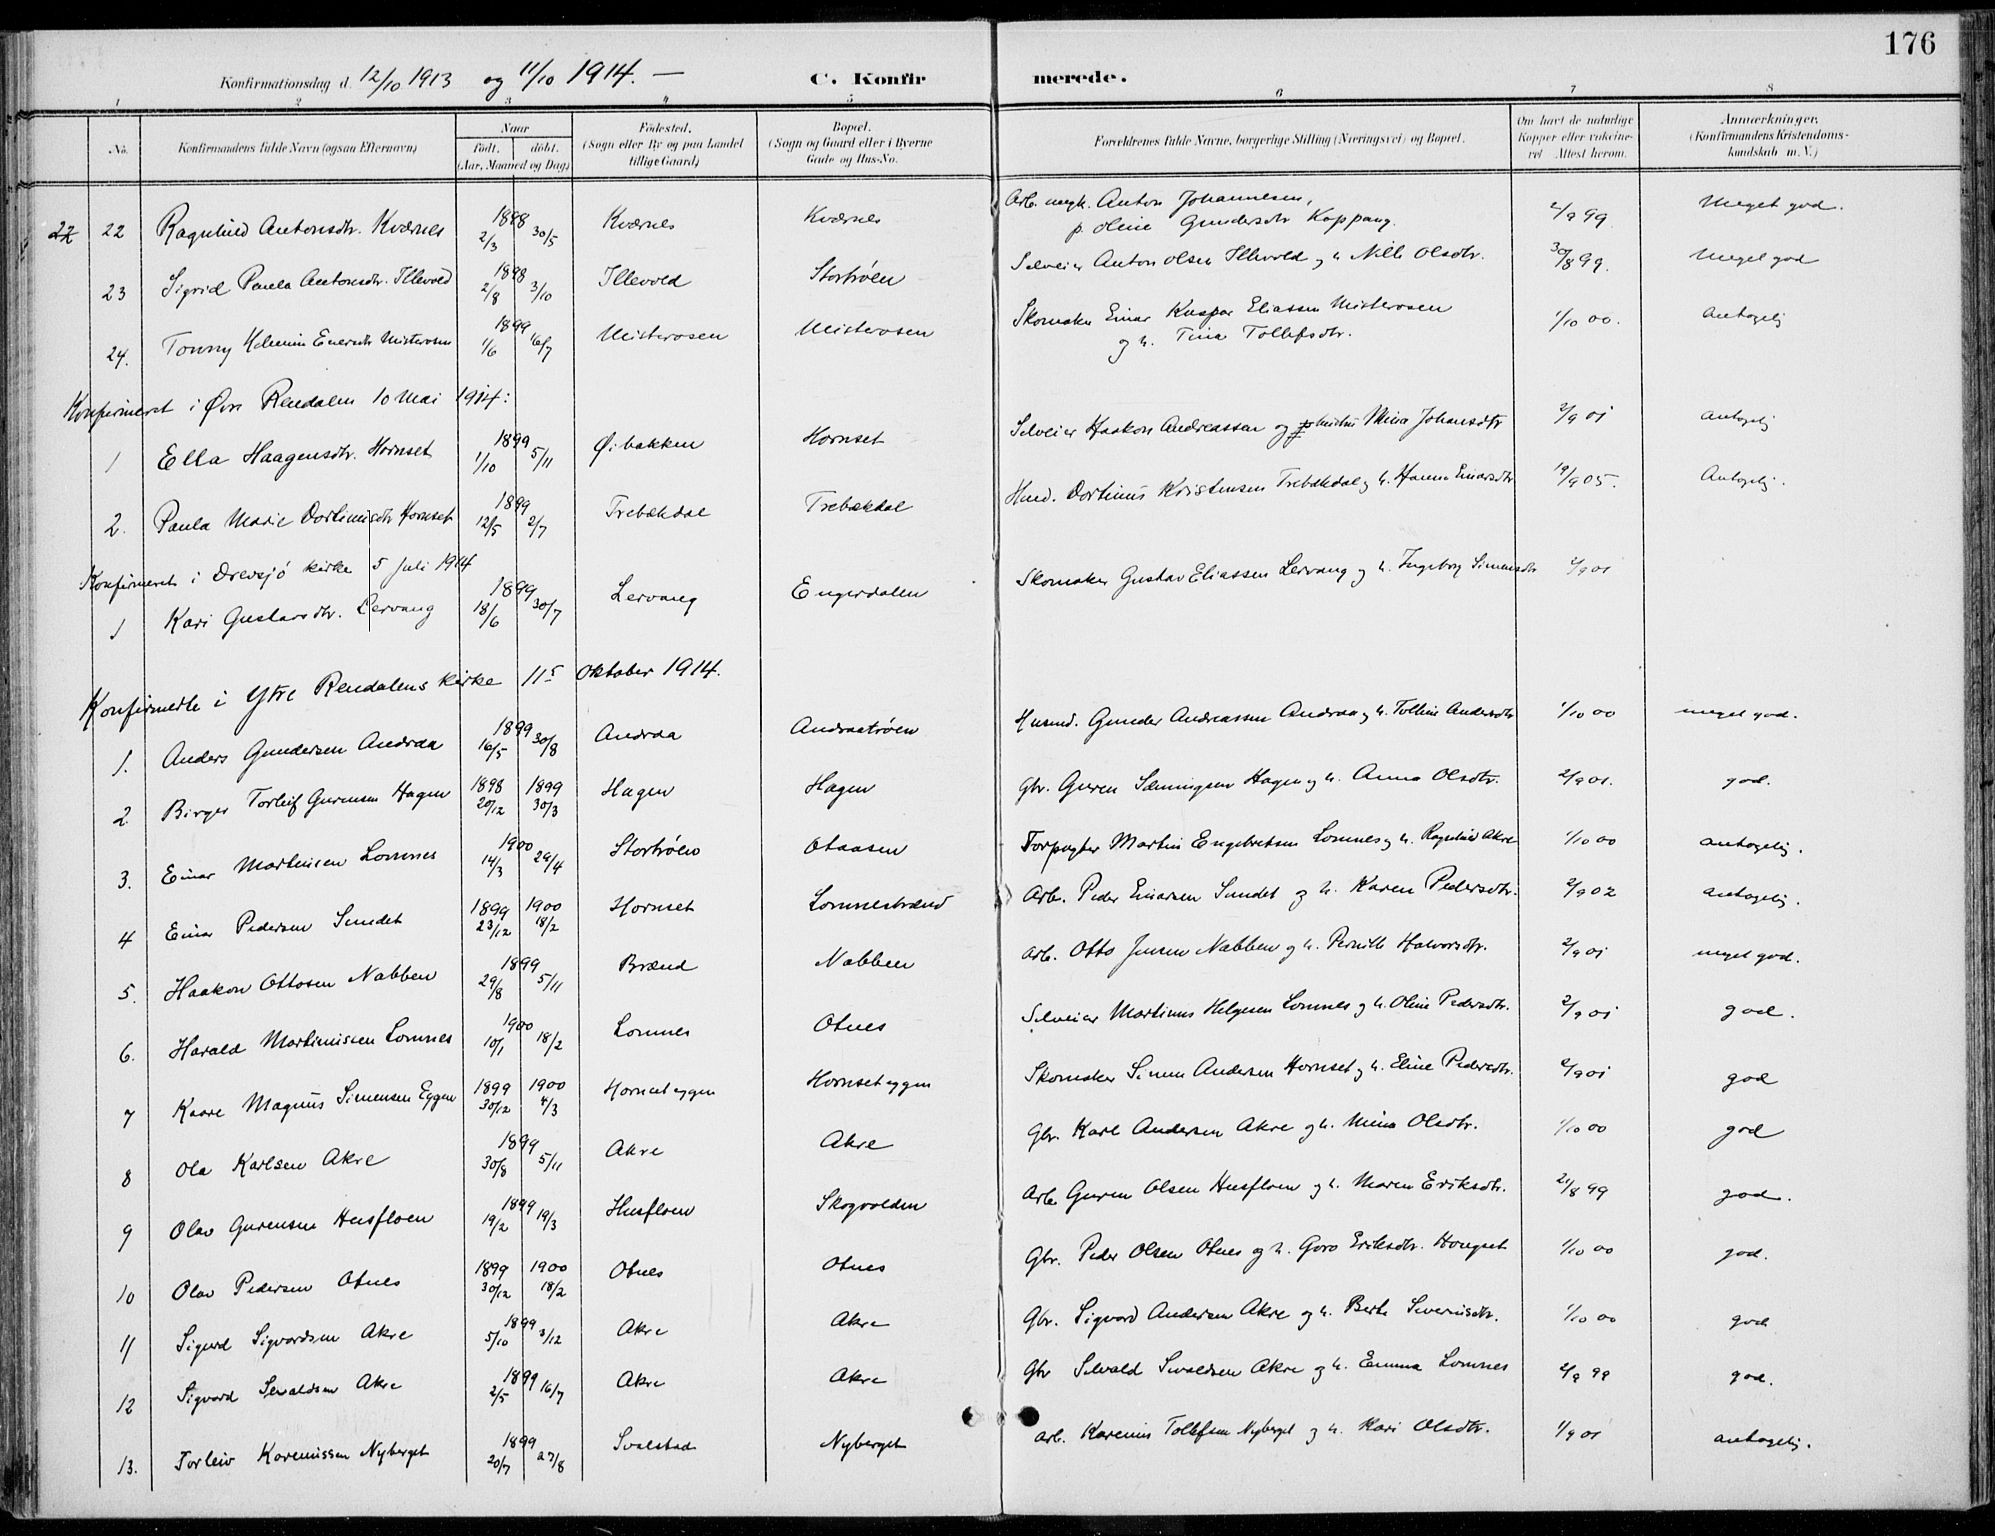 176
Konfirmationsdag d. 12/10 1913 og 11/10 1914. — C. Konfirmerede.
1 2 3 4 5 6 7 8
No. Konfirmandens fulde Navn (ogsaa Efternavn) Naar født. døbt. (Aar, Maaned og Dag) Fødested. (Sogn eller By og paa Landet tillige Gaard) Bopæl. (Sogn og Gaard eller i Byerne Gade og Hus-No. Forældrenes fulde Navne, borgerlige Stilling (Næringsvei) og Bopæl. Om havt de naturlige Kopper eller vaccineret. Attest herom. Anmærkninger. (Konfirmandens Kristendomskundskab m. V.)
22 22 Ragnhild Antonsdtr. Kværnes 1898 2/3 30/5 Kværnes Kværnes Arb. ungk. Anton Johannesen, p. Oline Gundersdtr Koppang. 2/9 99 Meget god.
23 Sigrid Paula Antonsdtr. Illevold 1898 2/8 3/10 Illevold Stortrøen Selveier Anton Olsen Illevold og h. Nille Olsdtr. 30/8 99. Meget god
24. Tonny Einarsdtr Misterosen 1899 1/6 16/7 Misterosen Misterosen Skomaker Einar Kaspar Eliassen Misterosen og h. Tina Tollefsdtr. 1/10 00. Antagelig
Konfirmeret i Øvre Rendalen 10 Mai 1914:
1 Ella Haagensdtr. Hornset 1899 1/10 5/11 Øibakken Hornset Selveier Haakon Andreassen og hustru Mina Johansdtr 2/9 01 Antagelig
2. Paula Marie Dortinusdtr Hornset 1899 12/5 2/7 Trebækdal Trebækdal Husd. Dortinus Kristensen Trebækdal og h. Hanna Einarsdtr 19/9 05. Antagelig.
Konfirmeret i Drevsjø kirke 5 Juli 1914
1 Kari Gustavsdtr. Lervang 1899 18/6 30/7 Lervang Engerdalen Skomaker Gustav Eliassen Lervang og h. Ingeborg Simensdtr 2/9 01
Konfirmerte i Ytre Rendalens kirke 11te Oktober 1914.
1. Anders Gundersen Andraa 1899 16/5 30/8 Andraa Andraatrøen Husmd. Gunder Andreassen Andraa og h. Tolline Andersdtr 1/10 00 meget god.
2. Birger Torleif Gurensen Hagen 1898 20/12 1899 30/3 Hagen Hagen Gbr. Guren Sæmingsen Hagen og h. Anna Olsdtr. 2/9 01. god.
3. Einar Martinsen Lomnes 1900 14/3 29/4 Stortrøen Otaasen Forpagter Martin Engebretsen Lomnes og h. Ragnhild Akre 1/10 00 antagelig.
4 Einar Pedersen Sundet 1899 23/12 1900 18/2 Hornset Lomnesstrand Arb. Peder Einarsen Sundet og h. Karen Pedersdtr. 2/9 02 antagelig.
5. Haakon Ottosen Nabben 1899 29/8 5/11 Brænd Nabben Arb. Otto Jensen Nabben og h. Pernille Halvorsdtr. 2/9 01 meget god.
6. Harald Martinussen Lomnes 1900 10/1 18/2 Lomnes Otnes Selveier Martinus Helgesen Lomnes og h. Oline Pedersdtr. 2/9 01 god.
7 Kaare Magnus Simensen Eggen 1899 30/12 1900 4/3 Hornseteggen Hornseteggen Skomaker Simen Andersen Hornset og h. Eline Pedersdtr. 2/9 01 god
8 Ola Karlsen Akre 1899 30/8 5/11 Akre Akre Gbr. Karl Andersen Akre og h. Mina Olsdtr. 1/10 00 god
9 Olav Gurensen Husfloen 1899 19/2 19/3 Husfloen Skogvolden Arb. Guren Olsen Husfloen og h. Maren Eriksdtr. 21/8 99 god.
10 Olav Pedersen Otnes 1899 30/12 1900 18/2 Otnes Otnes Gbr. Peder Olsen Otnes og h. Goro Eriksdtr. Hougset 1/10 00 god.
11 Sigurd Sigvardsen Akre 1899 5/10 3/12 Akre Akre Gbr. Sigvard Andersen Akre og h. Berte Severinsdtr. 1/10 00 god
12 Sigvard Sevaldsen Akre 1899 2/5 16/7 Akre Akre Gbr Sevald Sevaldsen Akre og h. Emma Lomnes 2/9 99 god.
13. Torleiv Kareniussen Nyberget 1899 20/7 27/8 Svalstad Nyberget Arb. Karenius Tollefsen Nyberget og h. Kari Olsdtr. 1/9 01 antagelig.